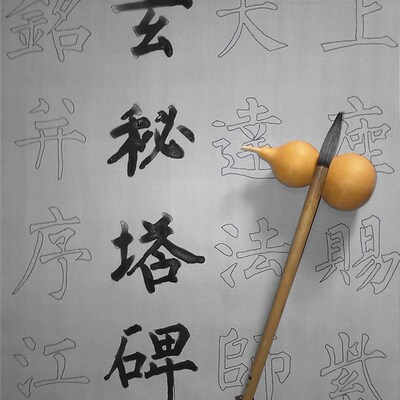 上座賜紫
大達法師
玄秘塔碑
銘并序江